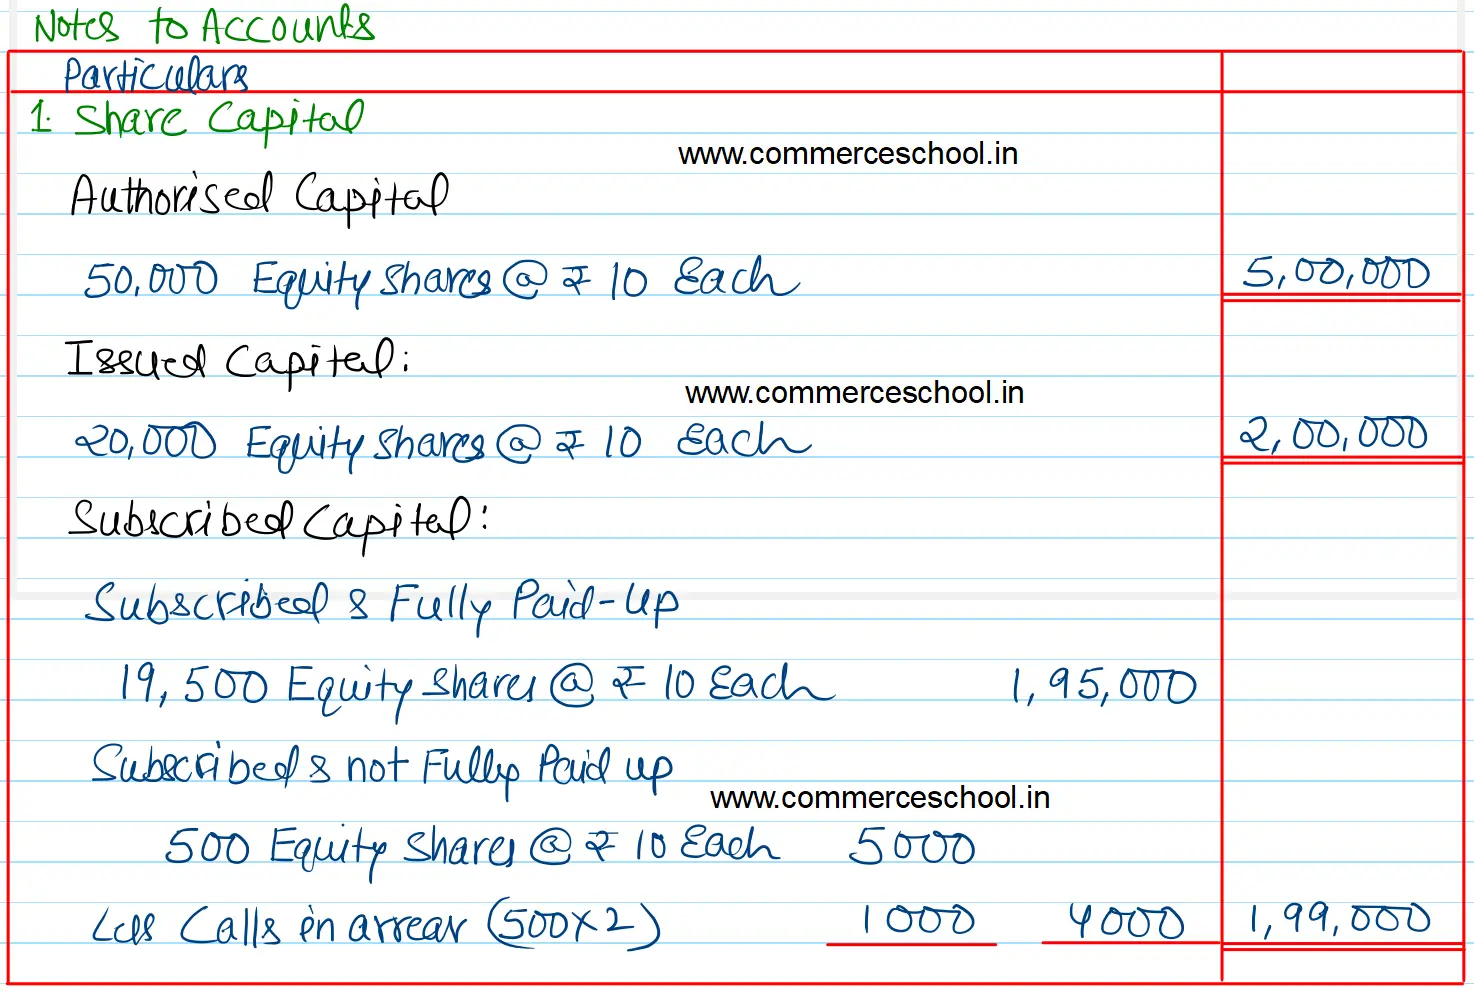 Notes to Accounts
Particulars
1. Share Capital
www.commerceschool.in
Authorised Capital
50,000 Equity Shares @ ₹ 10 Each 5,00,000
Issued Capital:
www.commerceschool.in
20,000 Equity Shares @ ₹ 10 Each 2,00,000
Subscribed Capital:
Subscribed & Fully Paid-Up
19,500 Equity Shares @ ₹ 10 Each 1,95,000
Subscribed & not Fully Paid up
www.commerceschool.in
500 Equity Shares @ ₹ 10 Each 5000
Less Calls in arrear (500×2) 1000 4000 1,99,000